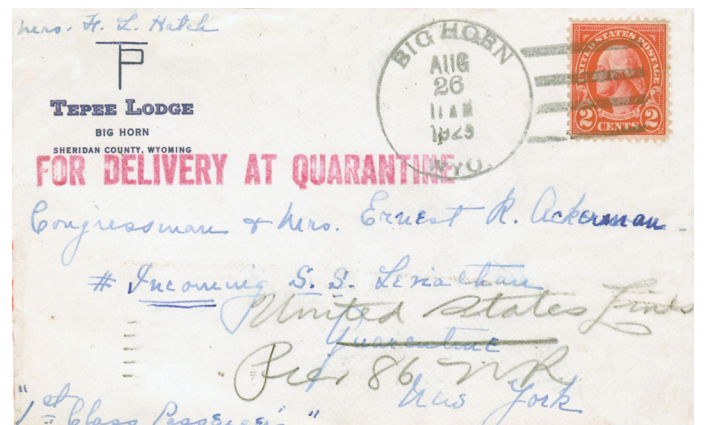 Mrs. F. L. Hatch
TEPEE LODGE
BIG HORN
SHERIDAN COUNTY, WYOMING
BIG HORN
AUG
26
11 AM
1929
WYO.
UNITED STATES POSTAGE
2 CENTS 2
FOR DELIVERY AT QUARANTINE
Congressman & Mrs. Ernest R. Ackerman
# Incoming S. S. Leviathan
United States Lines
Quarantine
Pier 86 N.R.
New York
"1st Class Passengers"